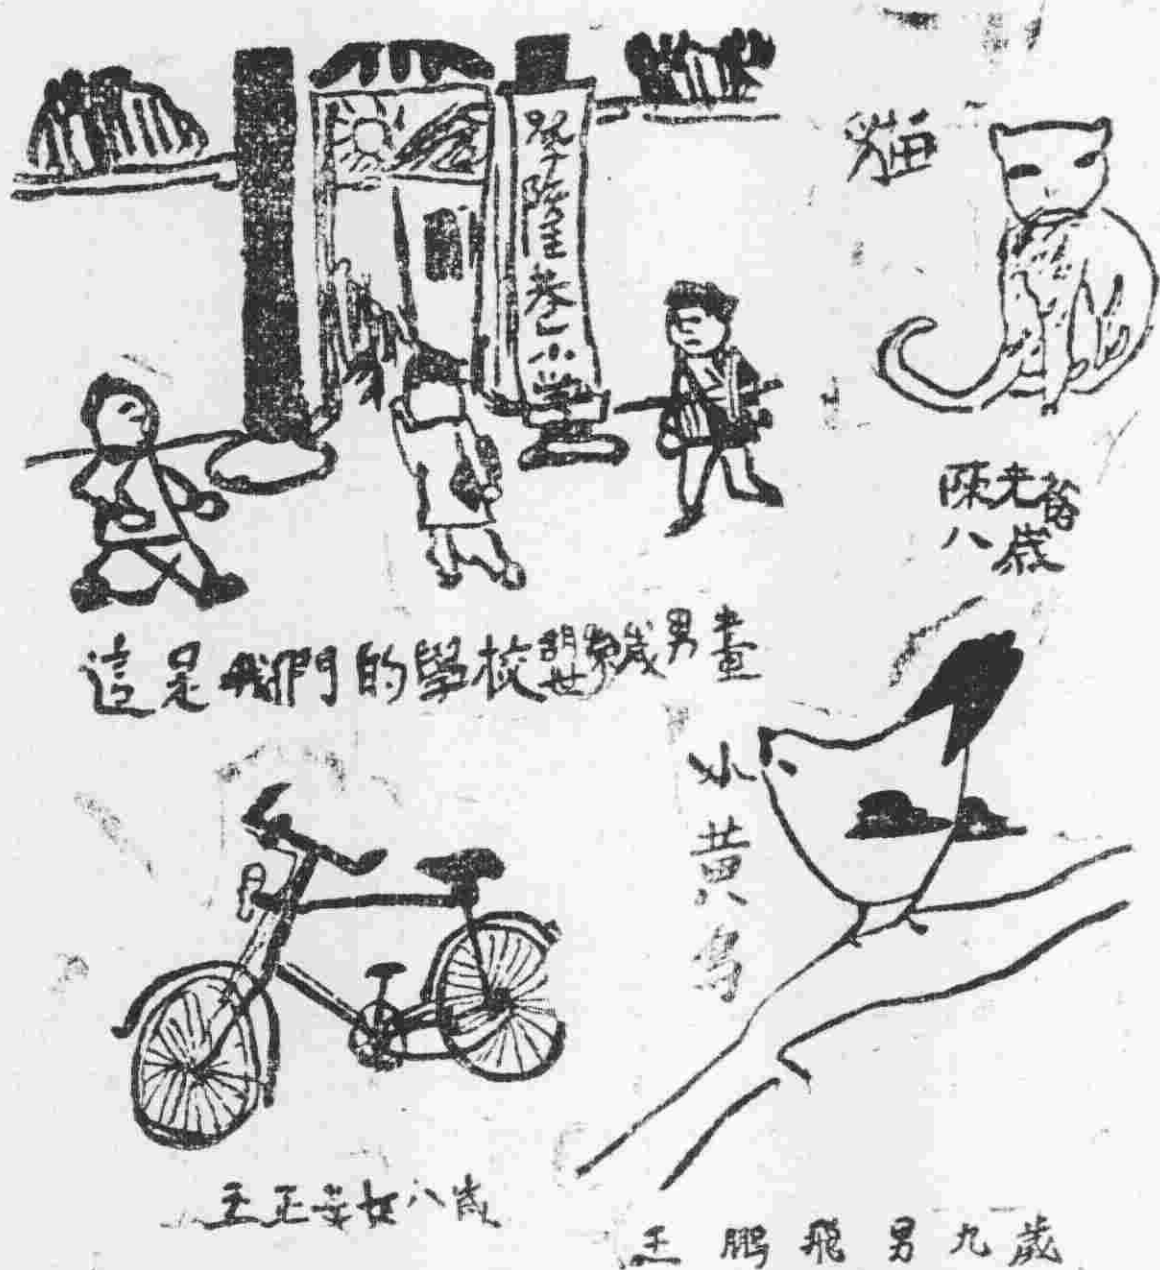 隆巷小学
猫
陳光裕
八歲
這是我們的學校 胡世 歲男畫
小黄鸟
王正 女八歲
王鵬飛男九歲